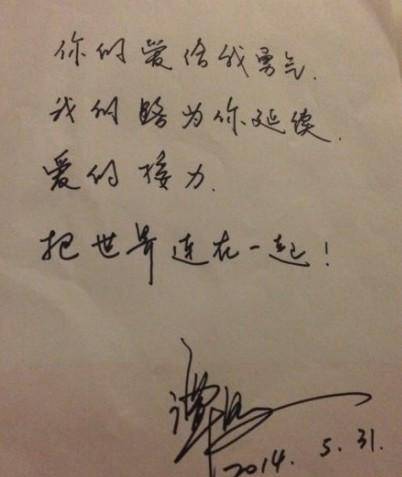 你的爱给我勇气.
我的路为你延续.
爱的接力.
把世界连在一起！
2014. 5. 31.